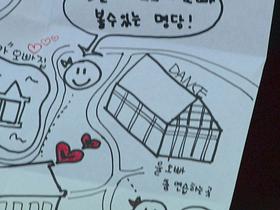 볼수있는 명당!
오빠집
DANCE
울오빠
춤 연습하는곳